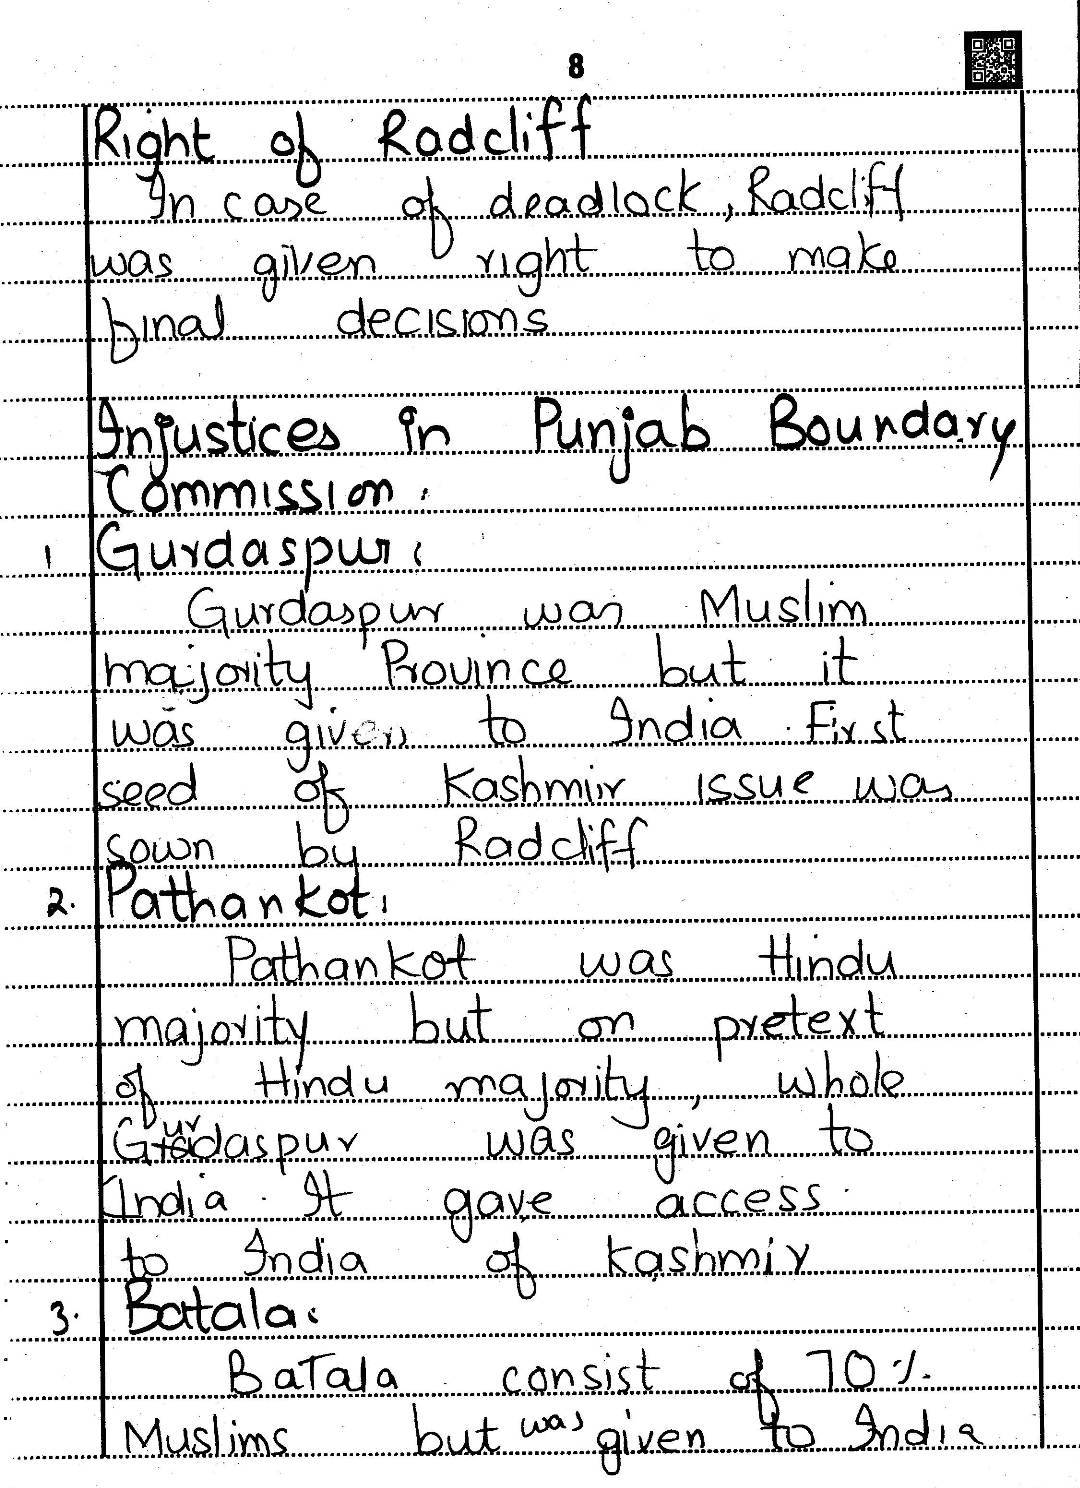 8
Right of Radcliff
In case of deadlock, Radcliff
was given right to make
final decisions
Injustices in Punjab Boundary
Commission.
1 Gurdaspur:
Gurdaspur was Muslim
majority Province but it
was given to India. First
seed of Kashmir issue was
sown by Radcliff
2. Pathankot:
Pathankot was Hindu
majority but on pretext
of Hindu majority, whole
Gurdaspur was given to
India. It gave access
to India of Kashmir
3. Batala:
Batala consist of 70%
Muslims but was given to India